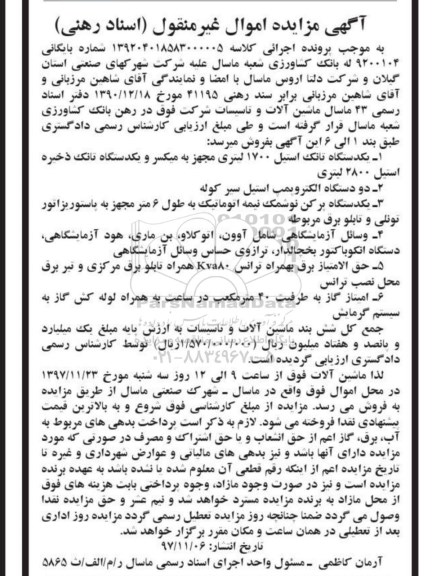 آگهی مزایده اموال غیرمنقول (اسناد رهنی)
به موجب پرونده اجرائی کلاسه ۱۳۹۲۰۴۰۱۸۵۸۳۰۰۰۰۰۵ شماره بایگانی
۹۲۰۰۱۰۴ له بانک کشاورزی شعبه ماسال علیه شرکت شهرکهای صنعتی استان
گیلان و شرکت دلتا اروس ماسال با امضا و نمایندگی آقای شاهین مرزبانی و
آقای شاهین مرزبانی برابر سند رهنی ۴۱۱۹۵ مورخ ۱۳۹۰/۱۲/۱۸ دفتر اسناد
رسمی ۴۳ ماسال ماشین آلات و تاسیسات شرکت فوق در رهن بانک کشاورزی
شعبه ماسال قرار گرفته است و طی مبلغ ارزیابی کارشناس رسمی دادگستری
طبق بند ۱ الی ۶ این آگهی بفروش میرسد.
۱ـ یکدستگاه تانک استیل ۱۷۰۰ لیتری مجهز به میکسر و یکدستگاه تانک ذخیره
استیل ۲۸۰۰ لیتری
۲ـ دو دستگاه الکتروپمپ استیل سیر کوله
۳ـ یکدستگاه پرکن نوشمک نیمه اتوماتیک به طول ۶ متر مجهز به پاستوریزاتور
تونلی و تابلو برق مربوطه
۴ـ وسائل آزمایشگاهی شامل آوون، اتوکلاو، بن ماری، هود آزمایشگاهی،
دستگاه انکوباکتور یخچالدار، ترازوی حساس وسائل آزمایشگاهی
۵ـ حق الامتیاز برق بهمراه ترانس Kva۸۰ همراه تابلو برق مرکزی و تیر برق
محل نصب ترانس
۶ـ امتیاز گاز به ظرفیت ۴۰ مترمکعب در ساعت به همراه لوله کش گاز به
سیستم گرمایش
جمع کل شش بند ماشین آلات و تاسیسات به ارزش پایه مبلغ یک میلیارد
و پانصد و هفتاد میلیون ریال (۱/۵۷۰/۰۰۰/۰۰۰ریال) توسط کارشناس رسمی
دادگستری ارزیابی گردیده است.
لذا ماشین آلات فوق از ساعت ۹ الی ۱۲ روز سه شنبه مورخ ۱۳۹۷/۱۱/۲۳
در محل اموال فوق واقع در ماسال ـ شهرک صنعتی ماسال از طریق مزایده
به فروش می رسد. مزایده از مبلغ کارشناسی فوق شروع و به بالاترین قیمت
پیشنهادی نقدا فروخته می شود. لازم به ذکر است پرداخت بدهی های مربوط به
آب، برق، گاز اعم از حق انشعاب و یا حق اشتراک و مصرف در صورتی که مورد
مزایده دارای آنها باشد و نیز بدهی های مالیاتی و عوارض شهرداری و غیره تا
تاریخ مزایده اعم از اینکه رقم قطعی آن معلوم شده یا نشده باشد به عهده برنده
مزایده است و نیز در صورت وجود مازاد، وجوه پرداختی بابت هزینه های فوق
از محل مازاد به برنده مزایده مسترد خواهد شد و نیم عشر و حق مزایده نقدا
وصول می گردد ضمنا چنانچه روز مزایده تعطیل رسمی گردد مزایده روز اداری
بعد از تعطیلی در همان ساعت و مکان مقرر برگزار خواهد شد.
تاریخ انتشار: ۹۷/۱۱/۰۶
آرمان کاظمی ـ مسئول واحد اجرای اسناد رسمی ماسال ر/م/الف/ث ۵۸۶۵
ParsNamadData
۰۲۱-۸۸۳۴۹۶۷۰